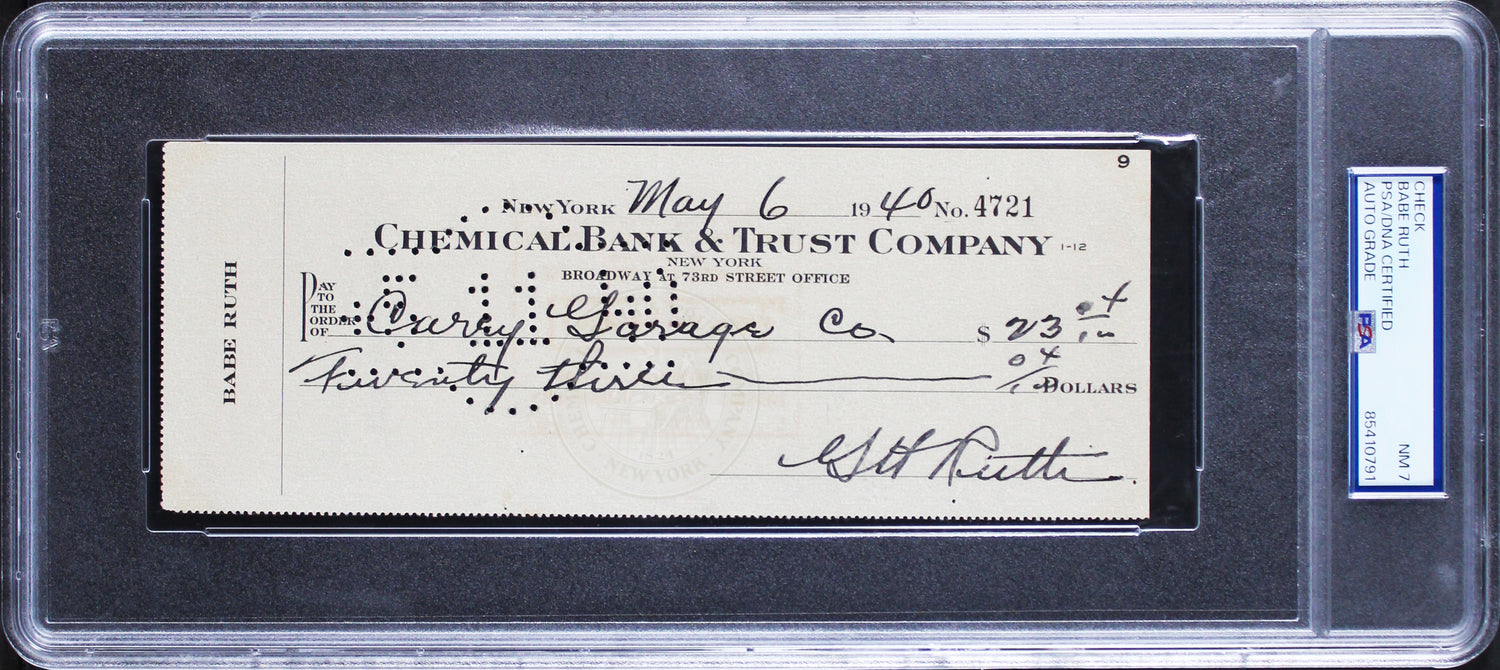 9
NEW YORK May 6 1940 No. 4721
CHEMICAL BANK & TRUST COMPANY 1-12
NEW YORK
BROADWAY AT 73RD STREET OFFICE
PAY TO THE ORDER OF Curry Garage Co. $ 23 04/100
Twenty three 04/100 DOLLARS
G H Ruth
BABE RUTH
NEW YORK
CHECK
BABE RUTH
PSA/DNA CERTIFIED
AUTO GRADE
NM 7
85410791
PSA